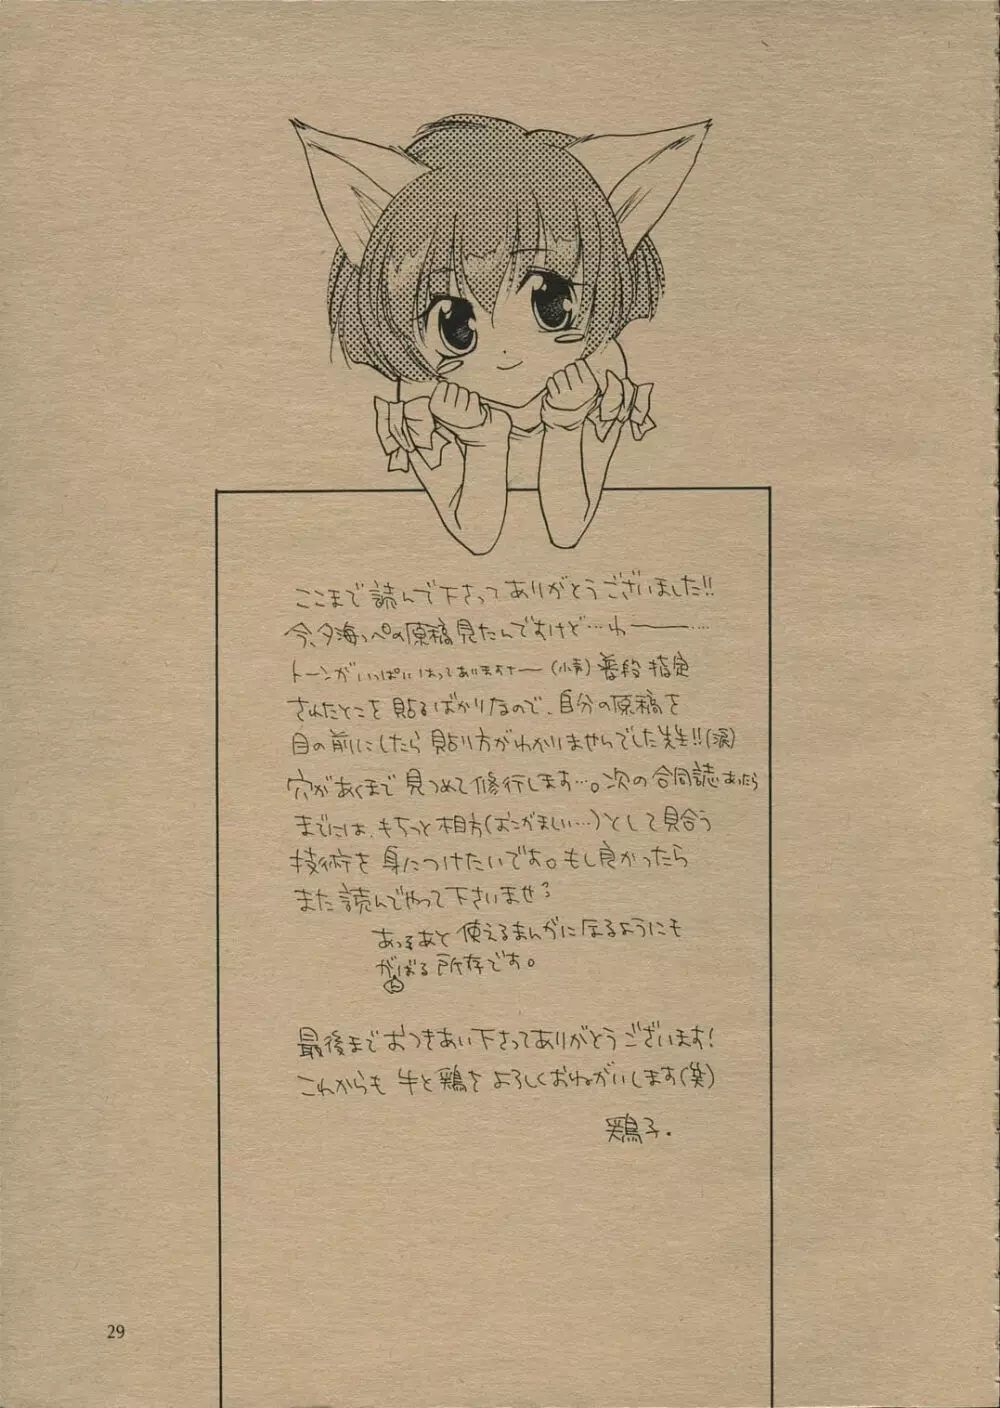 ここまで読んで下さってありがとうございました!!
今、夕海っぺの原稿見たんですけど…わーーー……
トーンがいっぱいはってありますナー(小声)普段指定
されたとこを貼るばかりなので、自分の原稿を
目の前にしたら貼り方がわかりませんでした先生!!(涙)
穴があくまで見つめて修行します…。次の合同誌あったら
までには、もちっと相方(おこがましい…)として見合う
技術を身につけたいです。もし良かったら
また読んでやって下さいませ?
あとあと使えるまんがになるようにも
がんばる所存です。
最後までおつきあい下さってありがとうございます!
これからも牛と鶏をよろしくおねがいします(笑)
鶏子.
29